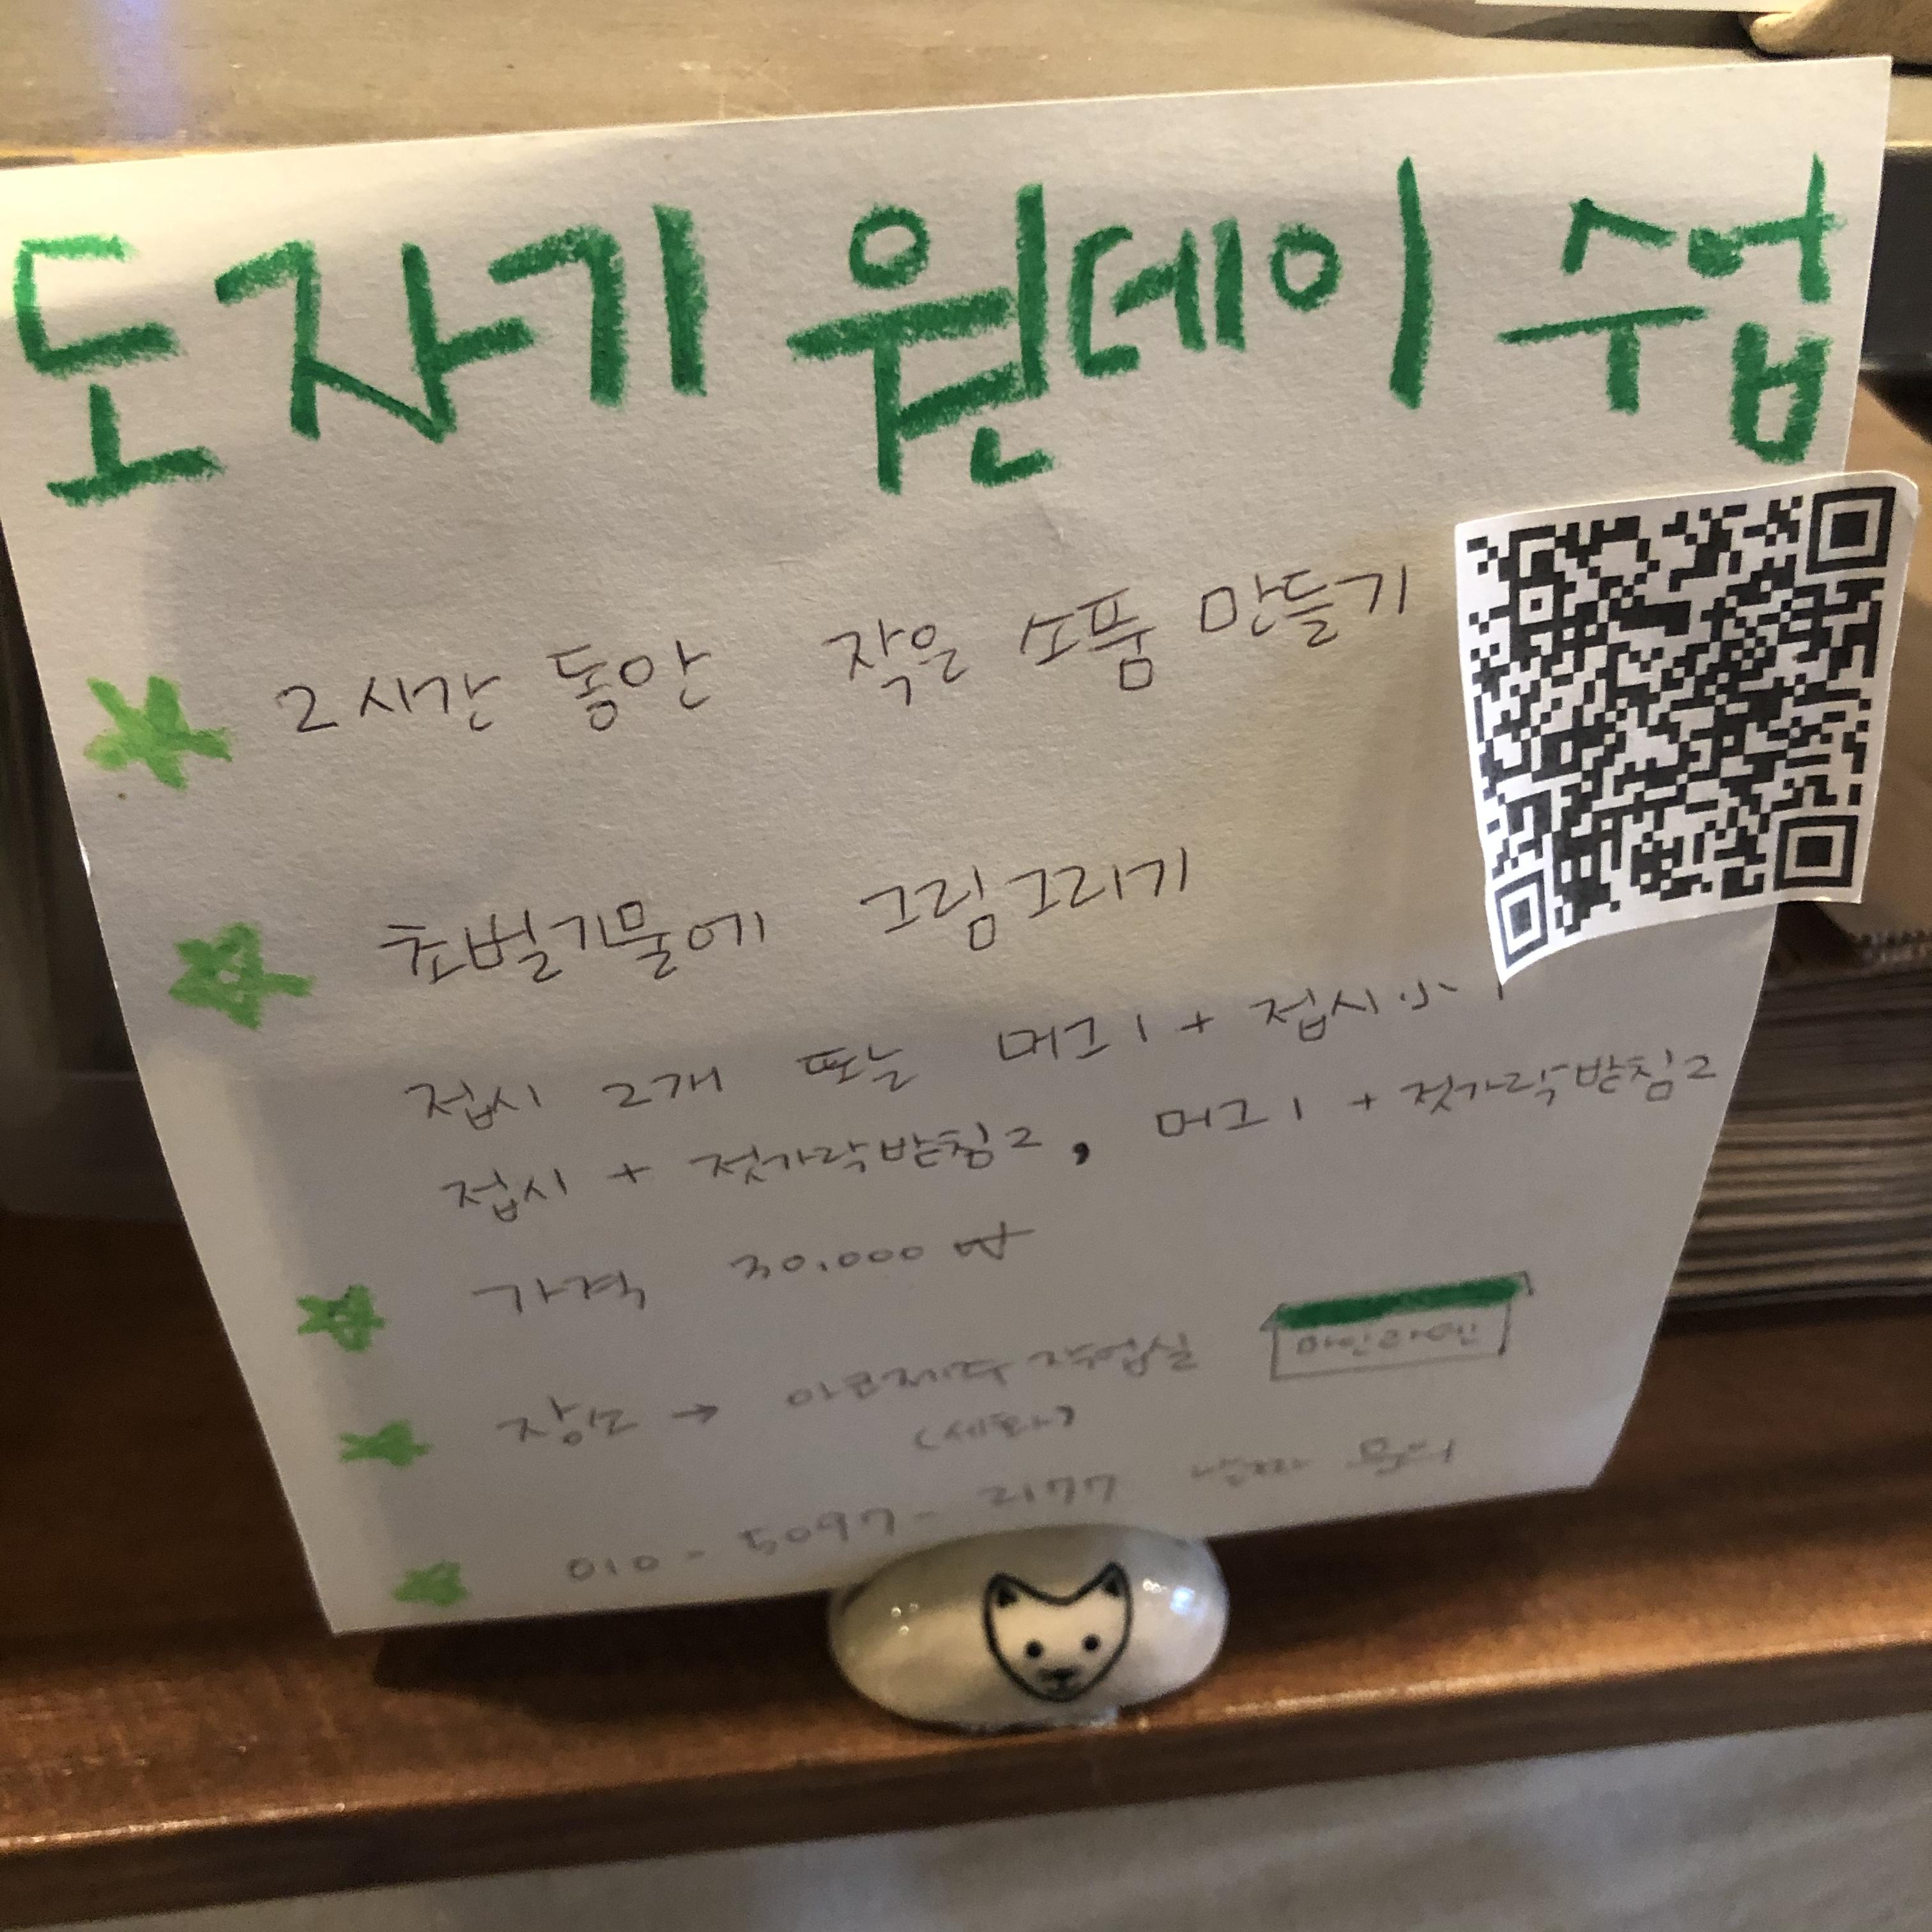 도자기 원데이 수업
2시간 동안 작은 소품 만들기
초벌기물에 그림그리기
접시 2개 또는 머그1 + 접시小 1
접시 + 젓가락받침2, 머그1 + 젓가락받침2
가격 30.000
장소 → 아코제주 작업실
(세화)
010 - 5097 - 2177 날짜 문의